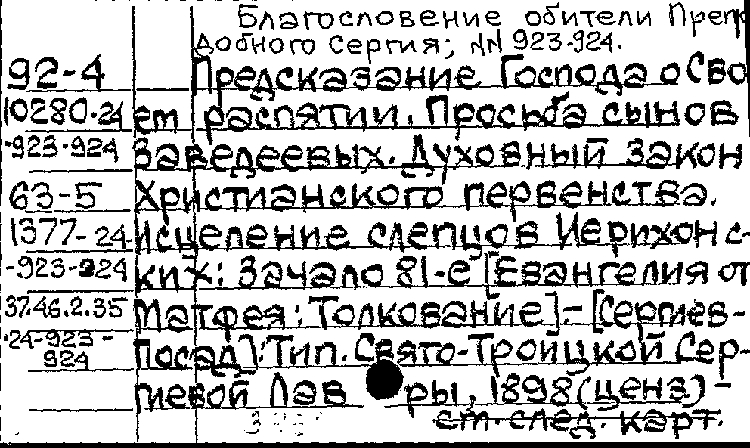 Благословение обители Преп
добного Сергия; NN 923-924.
92-4 Предсказание Господа о Сво
10280.24 ем распятии. Просьба сынов
-923-924 Заведеевых. Духовный закон
63-5 Христианского первенства.
1377-24 Исцеление слепцов Иерихонс-
-923-924 ких: Зачало 81-е [Евангелия от
3746.2.35 Матфея: Толкование].- [Сергиев-
24-923- посад]: Тип. Свято-Троицкой Сер-
924
гиевой Лав ры, 1898 (цена) -
ст. след. карт.